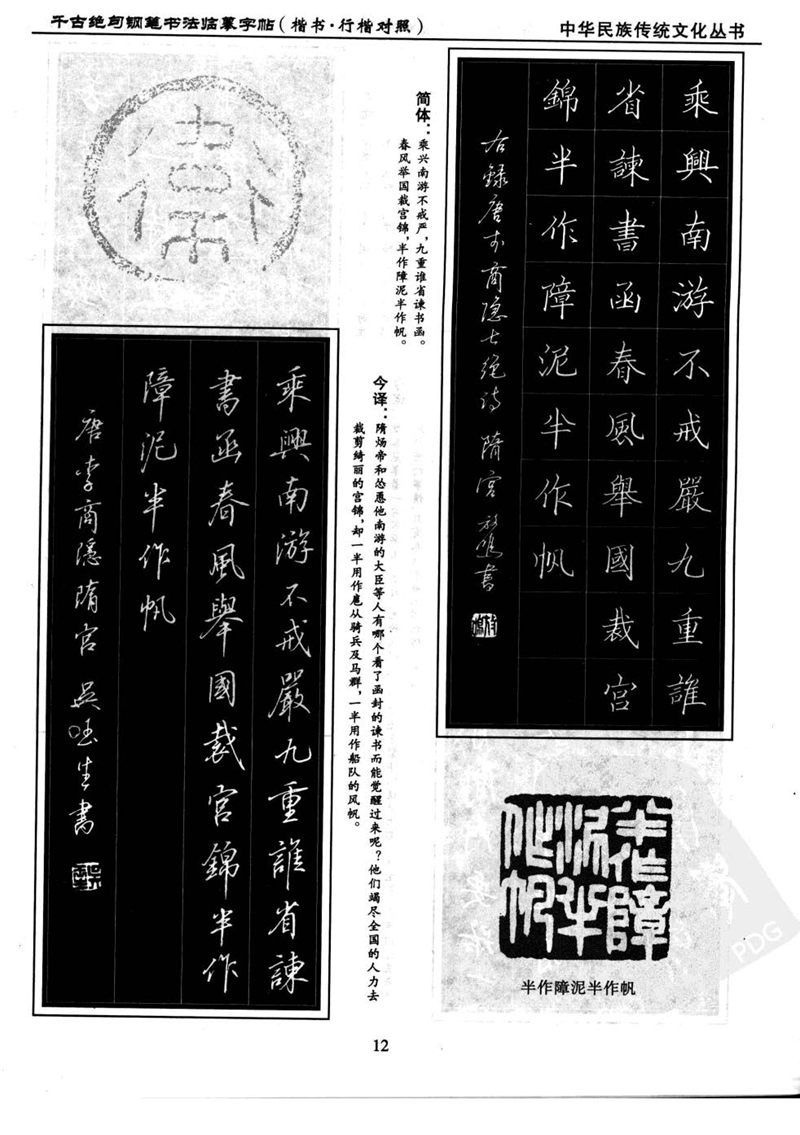 千古绝句钢笔书法临摹字帖（楷书·行楷对照）
中华民族传统文化丛书
乘興南游不戒嚴九重誰
省諫書函春風舉國裁宮
錦半作障泥半作帆
右録唐李商隐七绝诗 隋宫
書
简体：乘兴南游不戒严，九重谁省谏书函。
春风举国裁宫锦，半作障泥半作帆。
今译：隋炀帝和怂恿他南游的大臣等人有哪个看了函封的谏书而能觉醒过来呢？他们竭尽全国的人力去
裁剪绮丽的宫锦，却一半用作扈从骑兵及马群，一半用作船队的风帆。
乘興南游不戒嚴九重誰省諫
書函春風舉國裁宮錦半作
障泥半作帆
唐李商隱隋宮 吴 生書
半作障
泥半
作帆
半作障泥半作帆
PDG
12